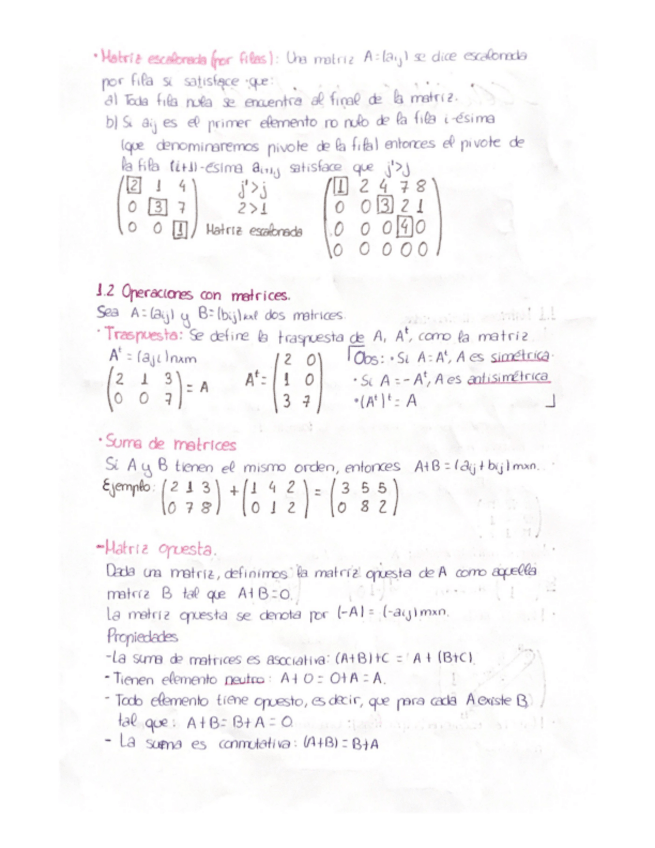 · Matriz escalonada (por filas): Una matriz A=(aij) se dice escalonada
por fila si satisface que:
a) Toda fila nula se encuentra al final de la matriz.
b) Si aij es el primer elemento no nulo de la fila i-ésima
(que denominaremos pivote de la fila) entonces el pivote de
la fila (i+1)-ésima ai+1j' satisface que j'>j
(2 1 4 j'>j (1 2 4 7 8
0 3 7 2>1 0 0 3 2 1
0 0 1) Matriz escalonada 0 0 0 4 0
0 0 0 0 0)
1.2 Operaciones con matrices.
Sea A=(aij) y B=(bij)kxl dos matrices
· Traspuesta: Se define la traspuesta de A, Aᵗ, como la matriz
Aᵗ = (aji)nxm
(2 1 3
0 0 7) = A
Aᵗ = (2 0
1 0
3 7)
Obs: · Si A=Aᵗ, A es simétrica.
· Si A=-Aᵗ, A es antisimétrica
· (Aᵗ)ᵗ = A
· Suma de matrices
Si A y B tienen el mismo orden, entonces A+B=(aij+bij)mxn.
Ejemplo: (2 1 3 + (1 4 2 = (3 5 5
0 7 8) 0 1 2) 0 8 2)
-Matriz opuesta.
Dada una matriz, definimos la matriz opuesta de A como aquella
matriz B tal que A+B=0.
La matriz opuesta se denota por (-A)=(-aij)mxn.
Propiedades
-La suma de matrices es asociativa: (A+B)+C = A+(B+C)
- Tienen elemento neutro: A+0=0+A=A.
- Todo elemento tiene opuesto, es decir, que para cada A existe B
tal que: A+B=B+A=0
- La suma es conmutativa: (A+B)=B+A